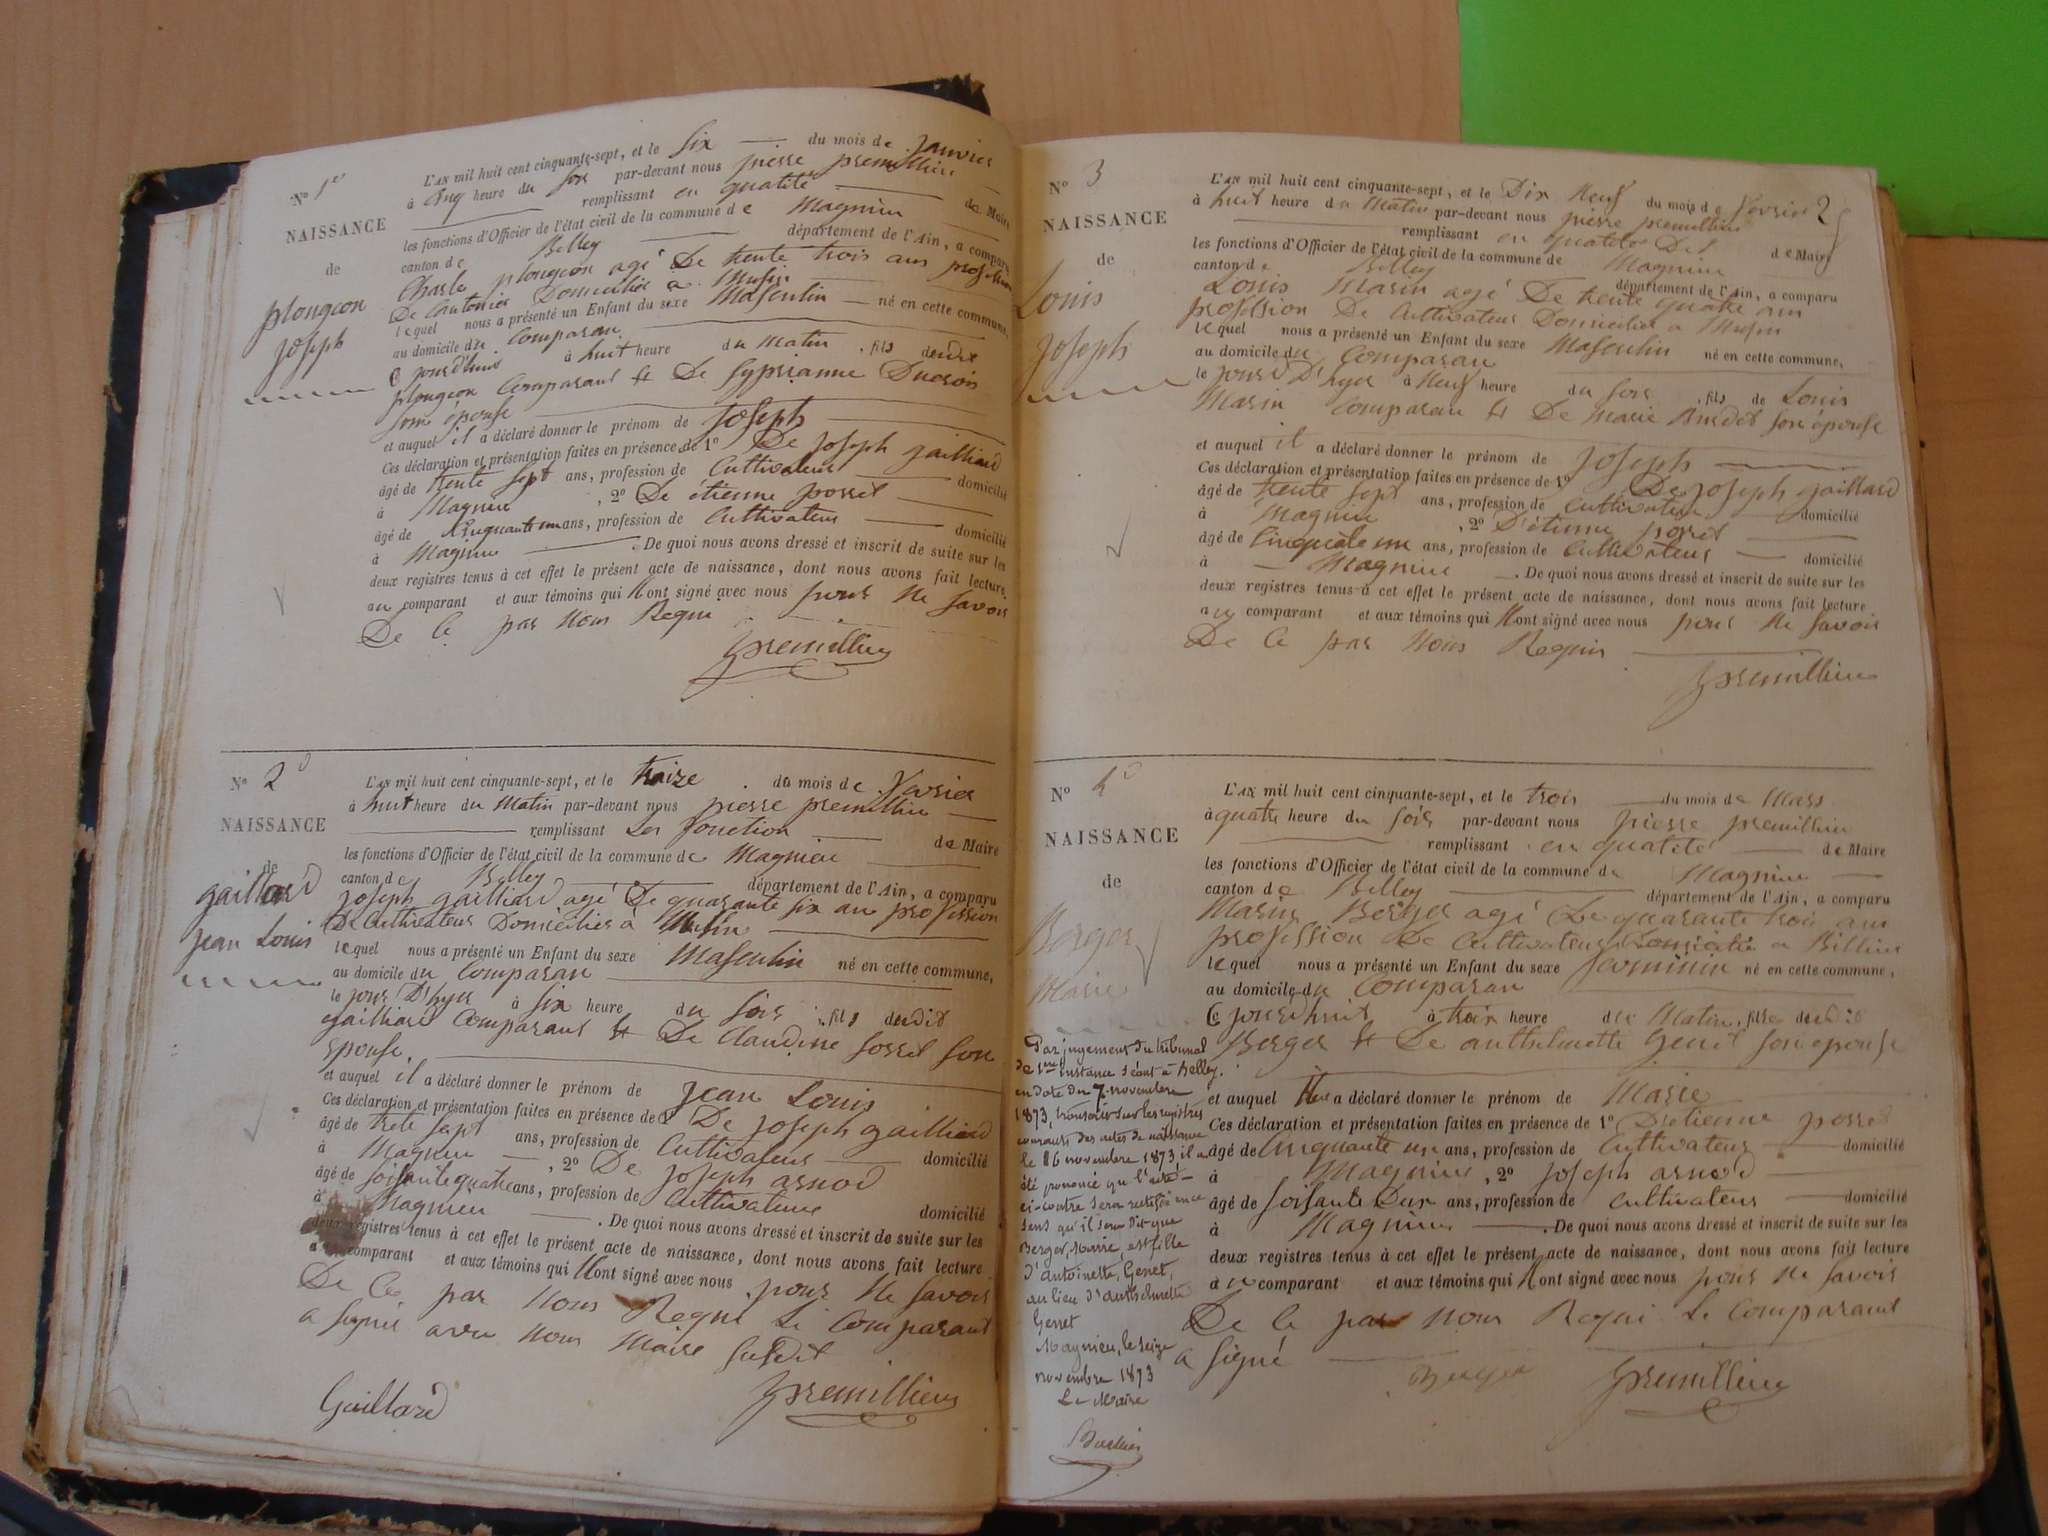 N° 1er
NAISSANCE
de
plongeon
joseph
L'AN mil huit cent cinquante-sept, et le six du mois de janvier
à cinq heure du soir par-devant nous pierre premillieu
remplissant en qualité de Maire
les fonctions d'Officier de l'état civil de la commune de Magnieu
canton de Belley département de l'Ain, a comparu
Charle plongeon agé De trente trois ans profession
De Cantonier Domicilié a Musin
lequel nous a présenté un Enfant du sexe Masculin né en cette commune,
au domicile du Comparau
Ce jourd'huit à huit heure du Matin, fils dudit
plongeon Comparant et De Gyprianne Ducroix
son épouse
et auquel il a déclaré donner le prénom de joseph
Ces déclaration et présentation faites en présence de 1° De joseph gailliard
âgé de trente sept ans, profession de Cultivateur domicilié
à Magnieu, 2° De étienne posset
âgé de Cinquante un ans, profession de Cultivateur domicilié
à Magnieu. De quoi nous avons dressé et inscrit de suite sur les
deux registres tenus à cet effet le présent acte de naissance, dont nous avons fait lecture
au comparant et aux témoins qui n'ont signé avec nous pour ne savoir
De Ce par Nous Requi
premillieu
N° 2
NAISSANCE
de
gaillard
jean Louis
L'AN mil huit cent cinquante-sept, et le traize du mois de fevrier
à huit heure du Matin par-devant nous pierre premillieu
remplissant Les fonction de Maire
les fonctions d'Officier de l'état civil de la commune de Magnieu
canton de Belley département de l'Ain, a comparu
joseph gailliard agé De quarante six an profession
De Cultivateur Domicilier à Musin
lequel nous a présenté un Enfant du sexe Masculin né en cette commune,
au domicile du Comparau
le jour D'hyer à six heure du soir, fils dudit
gailliard Comparant et De Claudine sorret son
épouse.
et auquel il a déclaré donner le prénom de jean Louis
Ces déclaration et présentation faites en présence de 1° De joseph gailliard
âgé de trete sept ans, profession de Cultivateur domicilié
à Magnieu, 2° De joseph arnod
âgé de soisante quatre ans, profession de Cultivateur domicilié
à Magnieu. De quoi nous avons dressé et inscrit de suite sur les
deux registres tenus à cet effet le présent acte de naissance, dont nous avons fait lecture
au comparant et aux témoins qui n'ont signé avec nous pour ne savoir
De Ce par Nous Requi Le Comparant
a signé avec nous Maire susdit
Gaillard premillieu
2
N° 3
NAISSANCE
de
Louis
joseph
L'AN mil huit cent cinquante-sept, et le Dix Neuf du mois de fevrier
à huit heure du Matin par-devant nous pierre premillieu
remplissant en qualité de Maire
les fonctions d'Officier de l'état civil de la commune de Magnieu
canton de Belley département de l'Ain, a comparu
Louis Marin agé De trente quatre ans
profession De Cultivateur Domicilié a Musin
lequel nous a présenté un Enfant du sexe Masculin né en cette commune,
au domicile du Comparau
le jour D'hyer à Neuf heure du soir, fils de Louis
Marin Comparau et De Marie son épouse
et auquel il a déclaré donner le prénom de joseph
Ces déclaration et présentation faites en présence de 1° De joseph gaillard
âgé de trente sept ans, profession de Cultivateur domicilié
à Magnieu, 2° D'étienne posset
âgé de Cinquate un ans, profession de Cultivateur domicilié
à Magnieu. De quoi nous avons dressé et inscrit de suite sur les
deux registres tenus à cet effet le présent acte de naissance, dont nous avons fait lecture
au comparant et aux témoins qui n'ont signé avec nous pour ne savoir
De Ce par Nous Requis
premillieu
N° 4
NAISSANCE
de
Berger
Marie
L'AN mil huit cent cinquante-sept, et le trois du mois de Mars
à quatre heure du soir par-devant nous pierre premillieu
remplissant en qualité de Maire
les fonctions d'Officier de l'état civil de la commune de Magnieu
canton de Belley département de l'Ain, a comparu
Marin Berger agé De quarante trois ans
profession De Cultivateur Domicilié a Billieu
lequel nous a présenté un Enfant du sexe feminin né en cette commune,
au domicile du Comparau
Ce jourd'huit à trois heure du Matin, fille dudit
Berger et De anthelmette Genet son épouse
et auquel il a déclaré donner le prénom de Marie
Ces déclaration et présentation faites en présence de 1° D'étienne posset
âgé de Cinquante un ans, profession de Cultivateur domicilié
à Magnieu, 2° joseph arnod
âgé de soisante Deux ans, profession de Cultivateur domicilié
à Magnieu. De quoi nous avons dressé et inscrit de suite sur les
deux registres tenus à cet effet le présent acte de naissance, dont nous avons fait lecture
au comparant et aux témoins qui n'ont signé avec nous pour ne savoir
De Ce par nous Requi Le Comparant
a signé
Berger premillieu
Par jugement du tribunal
de 1ère instance séant à Belley.
en date du 7 novembre
1873, transcrit sur les registres
courants des actes de naissance
le 16 novembre 1873 il a
été prononcé qu l'acte
ci-contre sera rectifié en ce
sens qu'il sera dit que
Berger, Marie, est fille
d'Antoinette, Genet,
au lieu d'Anthelmette
Genet
Magnieu, le seize
novembre 1873
Le Maire